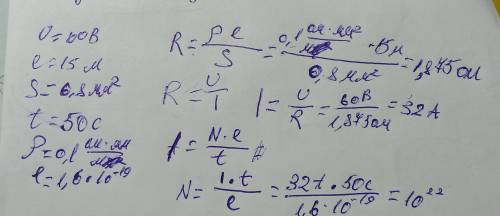 U=60В
l=15м
S=0,8мм²
t=50с
ρ=0,1 ом·мм²/м
e=1,6·10⁻¹⁹
R=ρl/S=0,1 ом·мм²/м ·15м/0,8мм²=1,875ом
R=U/I I=U/R=60В/1,875ом=32А
I=N·e/t
N=I·t/e=32А·50с/1,6·10⁻¹⁹=10²²